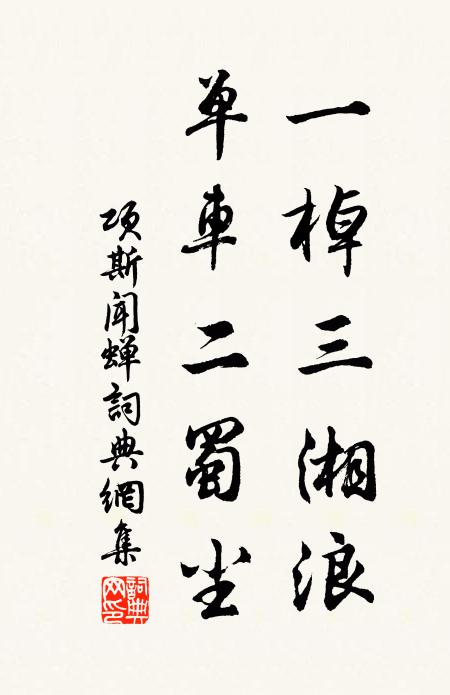 一棹三湘浪
单車二蜀尘
项斯闻蝉詞典網集
詞典網印